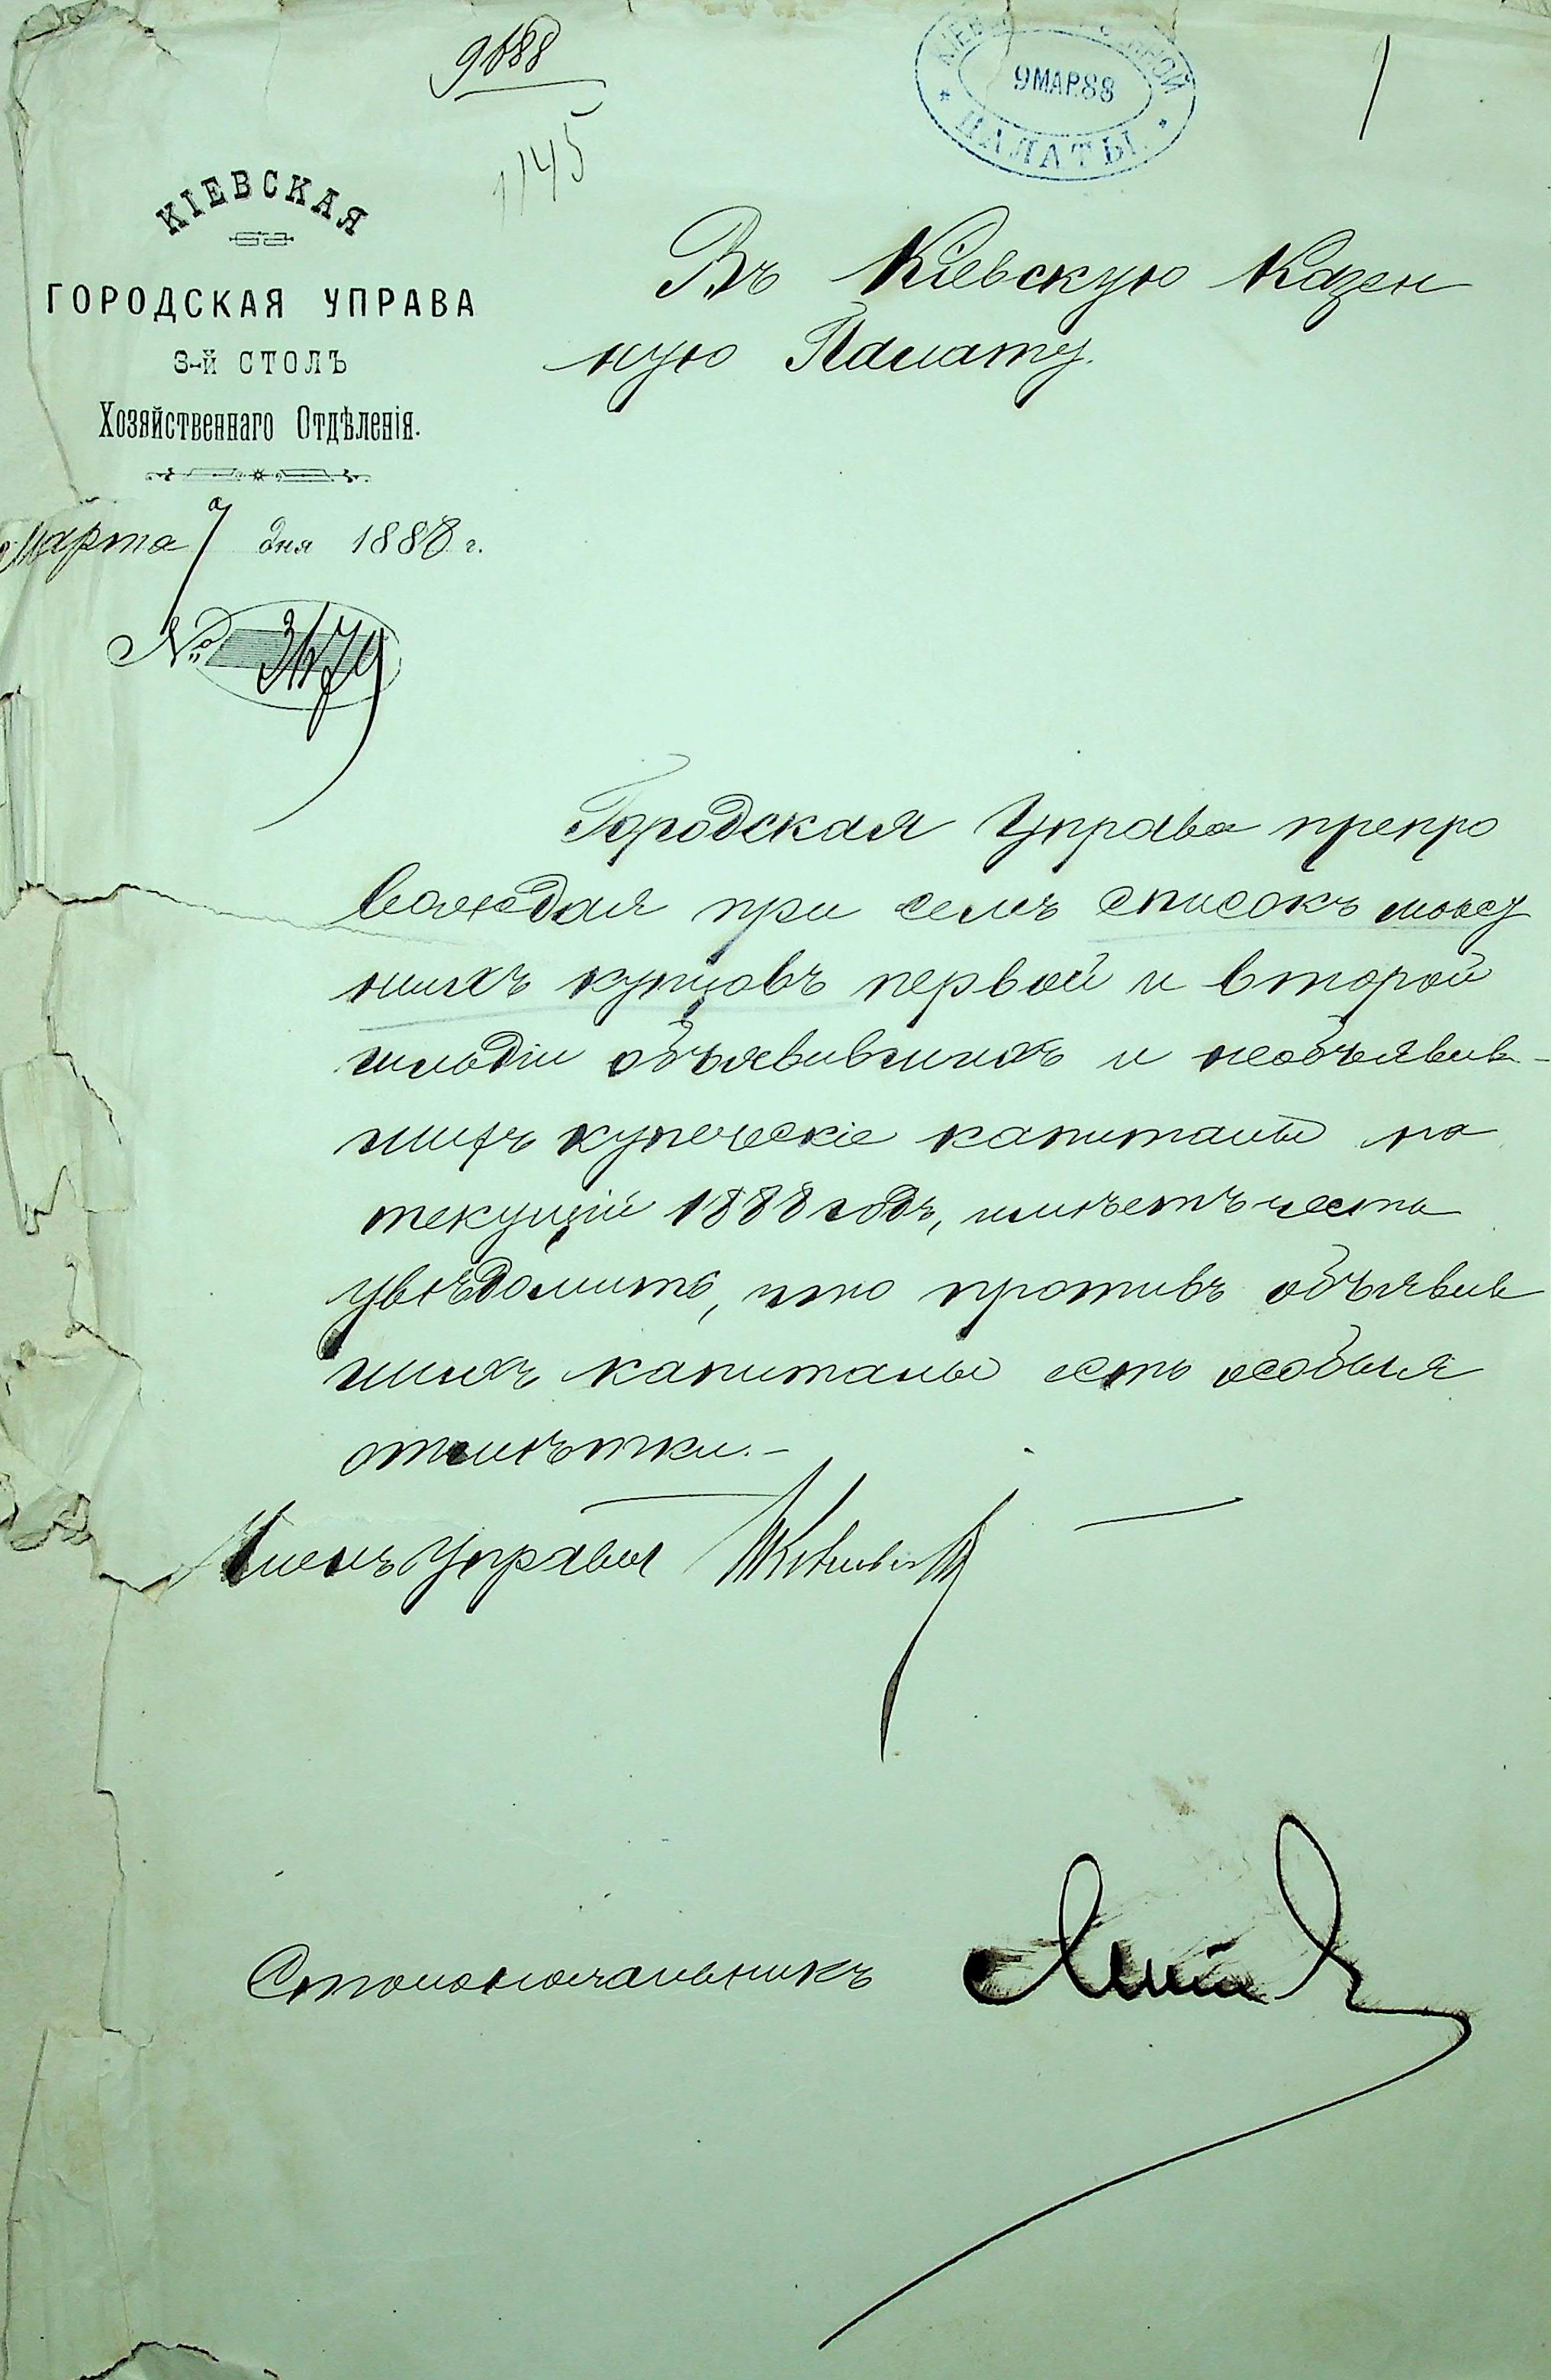 9 МАР. 88
ПАЛАТЫ
1
1145
КІЕВСКАЯ
ГОРОДСКАЯ УПРАВА
3-й СТОЛЪ
Хозяйственнаго Отдѣленія.
Марта 7 дня 1888 г.
№
Въ Кіевскую Казен
ную Палату.
Городская Управа препро
вождая при семъ списокъ
купцовъ первой и второй
гильдіи объявившихъ и необъявив-
шихъ купеческіе капиталы на
текущій 1888 годъ, имѣетъ честь
увѣдомить, что противъ объявив
шихъ капиталы есть особыя
отмѣтки.-
Членъ Управы
Столоначальникъ